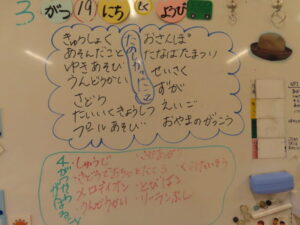 3 がつ 19 にち もく ようび
たのしかったこと
きゅうしょく
あそんだこと
ゆきあそび
うんどうかい
さどう
たいいくきょうしつ
プールあそび
おさんぽ
たなばたまつり
せいさく
ずが
えいご
おやまのがっこう
しゅうじ
メロディオン とびばこ
うんどうかい